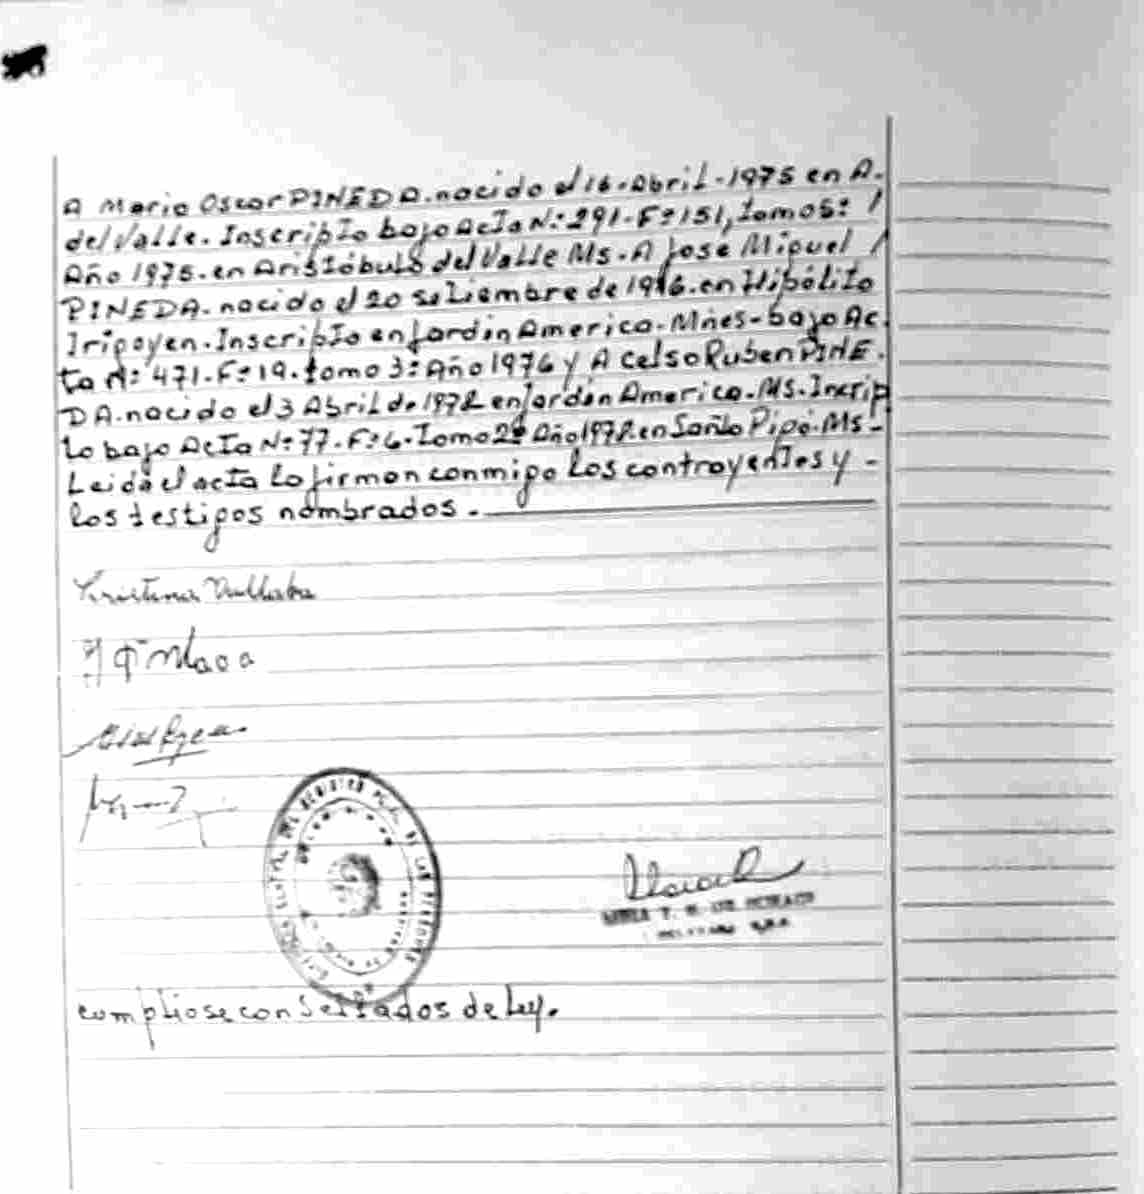 A Mario Oscar PINEDA. nacido el 16-Abril-1975 en A.
del Valle. Inscripto bajo Acta N: 291-F:151, tomo 5: /
Año 1975. en Aristóbulo del Valle Ms. A José Miguel /
PINEDA. nacido el 20 setiembre de 1976. en Hipólito
Irigoyen. Inscripto en Jardin America. Mnes-bajo Ac.
ta N: 471-F: 19. tomo 3: Año 1976 y A Celso Ruben PINE.
DA. nacido el 3 Abril de 1978 en Jardin America. Ms. Incrip
to bajo Acta N: 77-F: 6. Tomo 2º Año 1978 en Santo Pipó. Ms-
Leida el acta lo firman conmigo los contrayentes y -
los testigos nombrados.
REGISTRO DE LAS PERSONAS
cumpliose con Sellados de Ley.